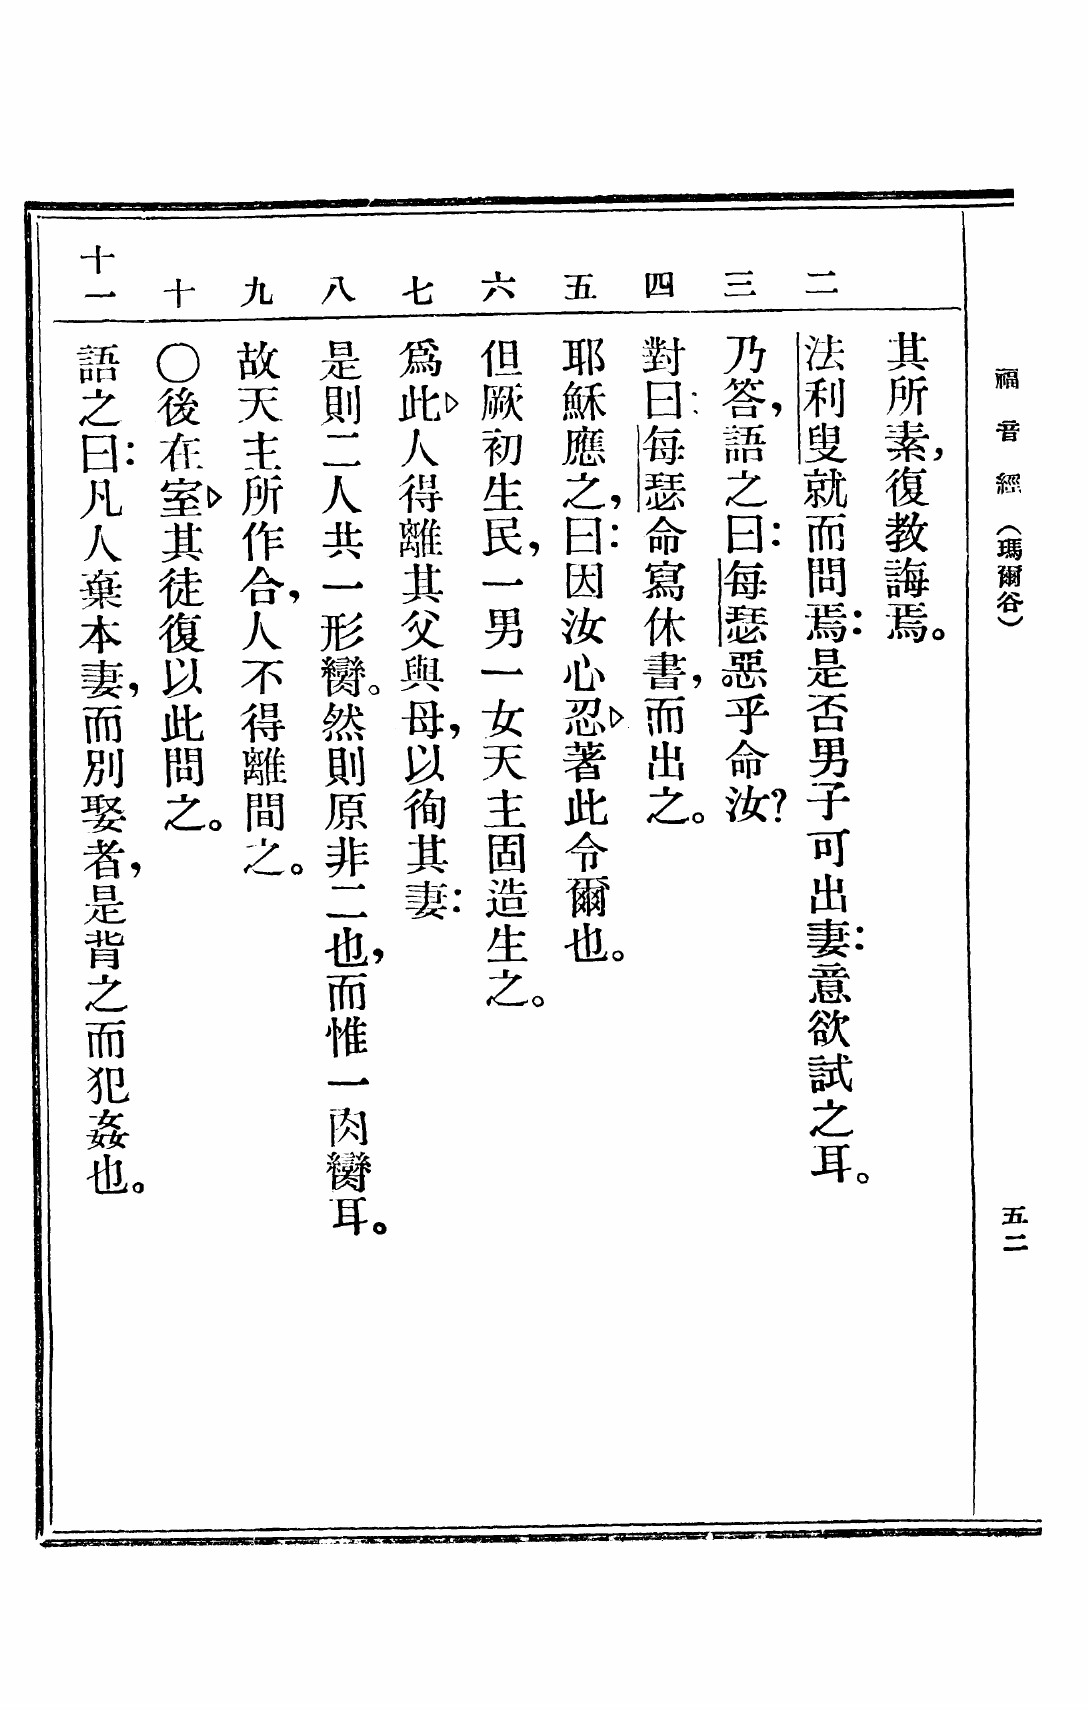 福音經(瑪爾谷)
五二
其所素,復教誨焉。
二 法利叟就而問焉:是否男子可出妻:意欲試之耳。
三 乃答,語之曰:每瑟惡乎命汝?
四 對曰:每瑟命寫休書,而出之。
五 耶穌應之,曰:因汝心忍▷著此令爾也。
六 但厥初生民,一男一女天主固造生之。
七 爲此▷人得離其父與母,以徇其妻:
八 是則二人共一形臠。然則原非二也,而惟一肉臠耳。
九 故天主所作合,人不得離間之。
十 ○後在室▷其徒復以此問之。
十一 語之曰:凡人棄本妻,而別娶者,是背之而犯姦也。